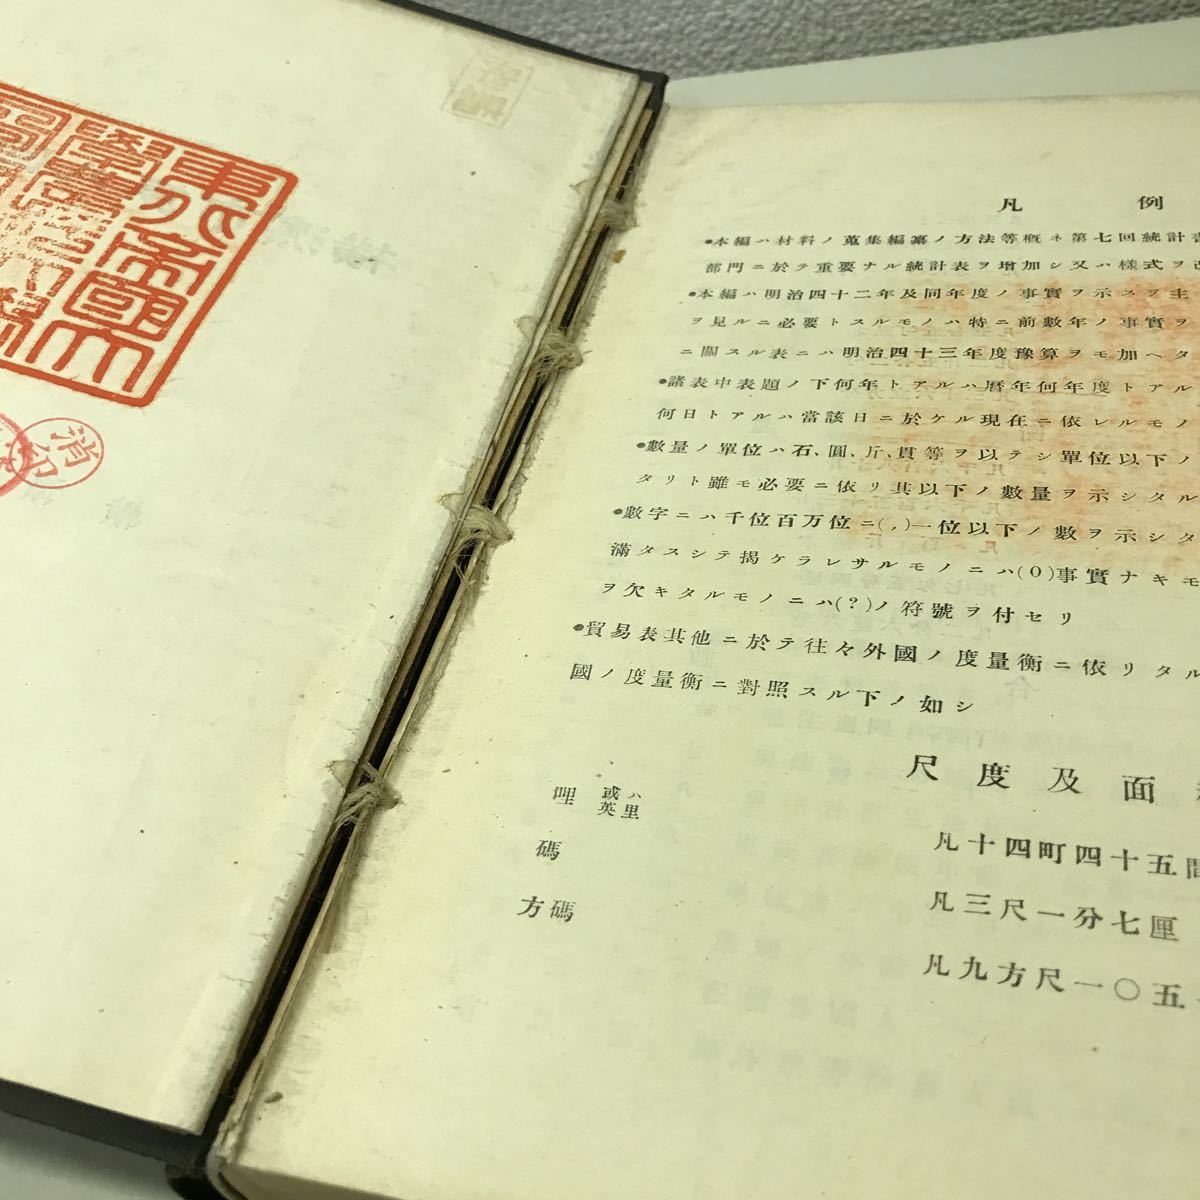 東北帝國大
學
消印
凡例
●本編ハ材料ノ蒐集編纂ノ方法等概ネ第七回統計書
部門ニ於テ重要ナル統計表ヲ增加シ又ハ樣式ヲ改
●本編ハ明治四十二年及同年度ノ事實ヲ示スヲ主
ヲ見ルニ必要トスルモノハ特ニ前數年ノ事實ヲ
ニ關スル表ニハ明治四十三年度豫算ヲモ加ヘタ
●諸表中表題ノ下何年トアルハ曆年何年度トアル
何日トアルハ當該日ニ於ケル現在ニ依レルモノ
●數量ノ單位ハ石、圓、斤、貫等ヲ以テシ單位以下ノ
タリト雖モ必要ニ依リ其以下ノ數量ヲ示シタル
●數字ニハ千位百万位ニ(,)一位以下ノ數ヲ示シタ
滿タスシテ揭ケラレサルモノニハ(0)事實ナキモ
ヲ欠キタルモノニハ(?)ノ符號ヲ付セリ
●貿易表其他ニ於テ往々外國ノ度量衡ニ依リタル
國ノ度量衡ニ對照スル下ノ如シ
尺度及面
哩 或ハ英里 凡十四町四十五間
碼 凡三尺一分七厘
方碼 凡九方尺一〇五